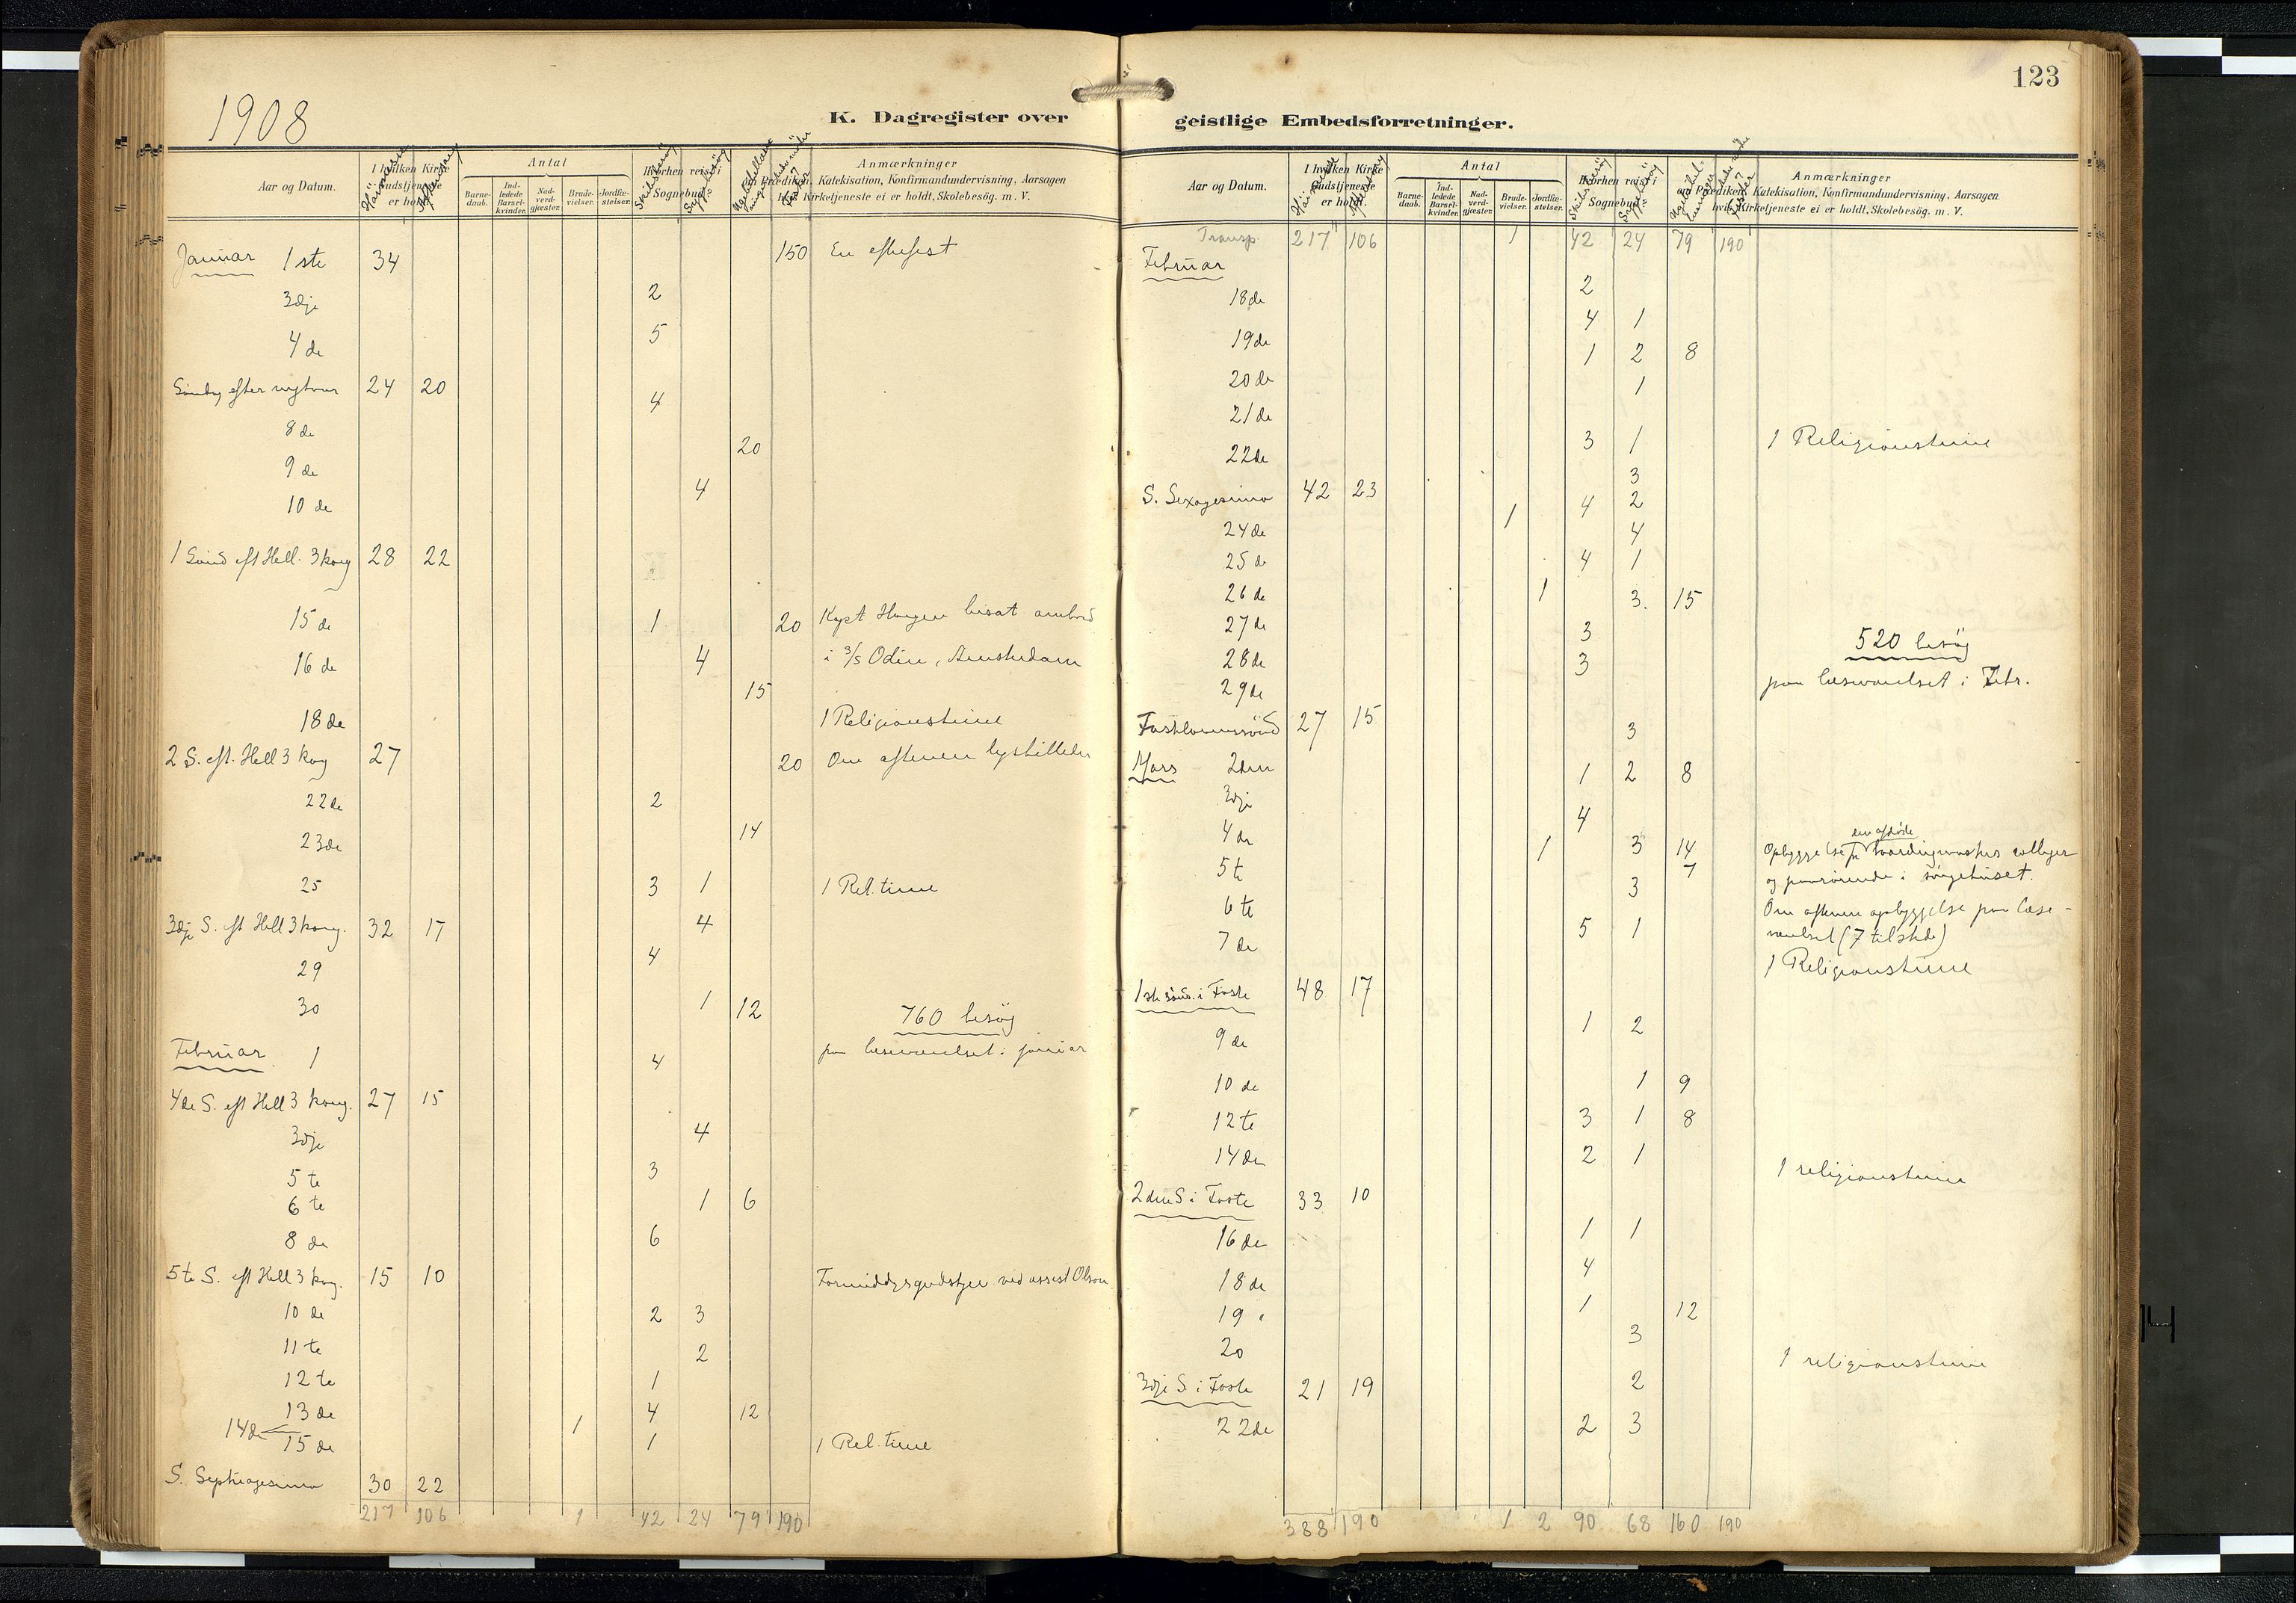 1908
K. Dagregister over
Aar og Datum.
I hvilken Kirke Gudstjeneste er holdt
Höimesse
Aftensang
Antal
Barne-daab.
Ind-ledede Barsel-kvinder.
Nad-verd-gjæster.
Brude-vielser.
Jordfæ-stelser.
Hvorhen reist i Sognebud.
Skibsbesög
Sygebesög
Anmærkninger
om Prædiken, Katekisation, Konfirmandundervisning, Aarsagen
hvis Kirketjeneste ei er holdt, Skolebesög. m. V.
Januar 1ste 34 150 En
3dje 2
4de 5
Söndag efter nytaar 24 20
8de 4
9de 20
10de 4
1 Sönd eft Hell. 3 kong 28 22
15de 1 20 Kapt Haugen bisat ombord
16de 4 i S/S Odin, Amsterdam
15
18de 1 Religionstime
2 S. eft. Hell 3 kong 27 20 Om aftenen lysbilleder
22de 2
23de 14
25 3 1 1 Rel. time
3dje S. eft Hell 3 kong. 32 17 4
29 4
30 1 12 760 besög
Februar 1 4 paa læseværelset i januar
4de S. eft Hell 3 kong. 27 15
3dje 4
5te 3
6te 1 6
8de 6
5te S. eft Hell 3 kong. 15 10 Formiddagsgudstjen ved assist Olson
10de 2 3
11te 2
12te 1
13de 4 12
14de 1
15de 1 1 Rel. time
S. Septuagesima 30 22
217 106 1 42 24 79 190
123
geistlige Embedsforretninger.
Aar og Datum.
I hvilken Kirke Gudstjeneste er holdt
Höimesse
Aftensang
Antal
Barne-daab.
Ind-ledede Barsel-kvinder.
Nad-verd-gjæster.
Brude-vielser.
Jordfæ-stelser.
Hvorhen reist i Sognebud.
Skibsbesög
Sygebesög
Anmærkninger
om Prædiken, Katekisation, Konfirmandundervisning, Aarsagen
hvis Kirketjeneste ei er holdt, Skolebesög. m. V.
Transp. 217 106 1 42 24 79 190
Februar
18de 2
19de 4 1
20de 1 2 8
21de 1
22de 3 1 1 Religionstime
S. Sexagesima 42 23 3
24de 1 4 2
25de 4
26de 4 1
27de 1 3. 15
28de 3 520 besög
29de 3 paa læseværelset i Febr.
Fastelavnssönd 27 15 3
Mars 2den 1 2 8
3dje 4
4de 1 3 14 Opbyggelse for den afdöde kolleger
5te 3 7 og paarörende i sörgehuset.
6te Om aftenen opbyggelse paa læse-
7de 5 1 værelset (7 tilstede)
1 Religionstime
1ste sönd. i Faste 48 17
9de 1 2
10de 1 9
12te 3 1 8
14de 2 1 1 religionstime
2den S i Faste 33 10
16de 1 1
18de 4
19 " 1 12
20 3 1 religionstime
3dje S i Faste 21 19 2
22de 2 3
388 190 1 2 90 68 160 190